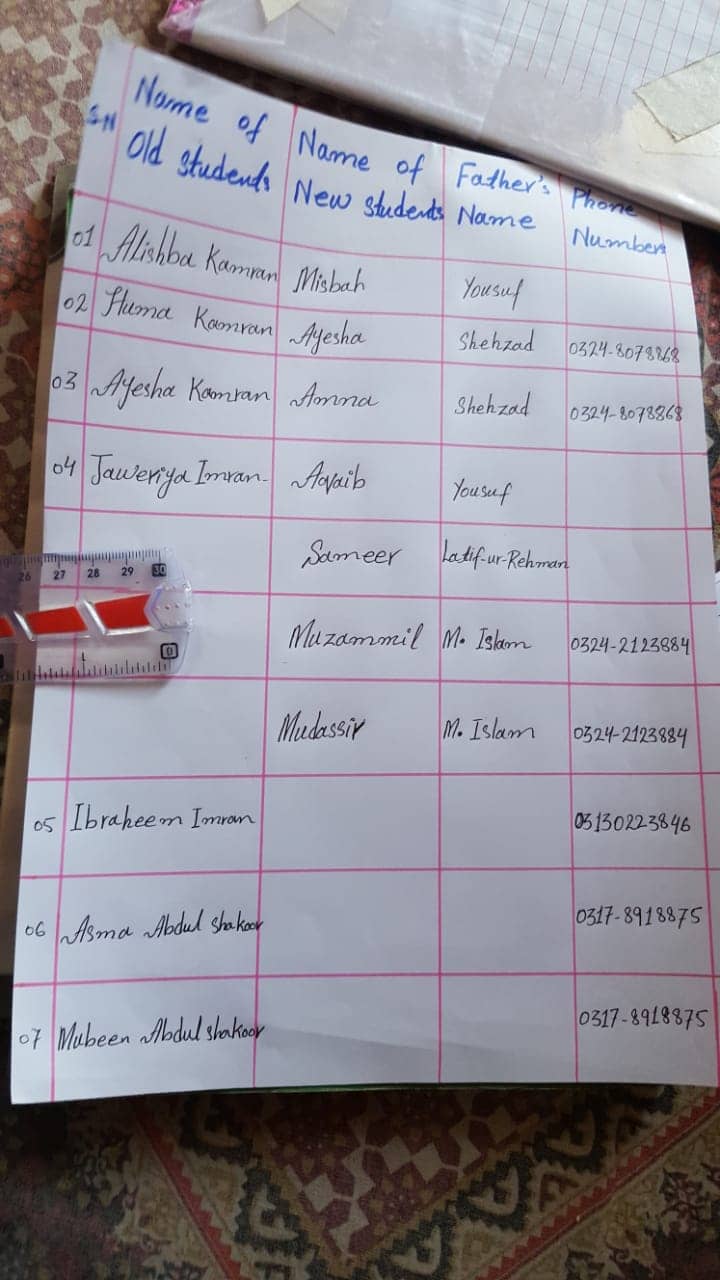 SN Name of Old students Name of New students Father's Name Phone Numbers
01 Alishba Kamran Misbah Yousuf
02 Huma Kamran Ayesha Shehzad 0324-8078868
03 Ayesha Kamran Amna Shehzad 0324-8078868
04 Jaweriya Imran Yousuf
Sameer Latif-ur-Rehman
Muzammil M. Islam 0324-2123884
Mudassir M. Islam 0324-2123884
26 27 28 29 30
1 0
05 Ibraheem Imran 03130223846
06 Asma Abdul shakoor 0317-8918875
07 Mubeen Abdul shakoor 0317-8918875